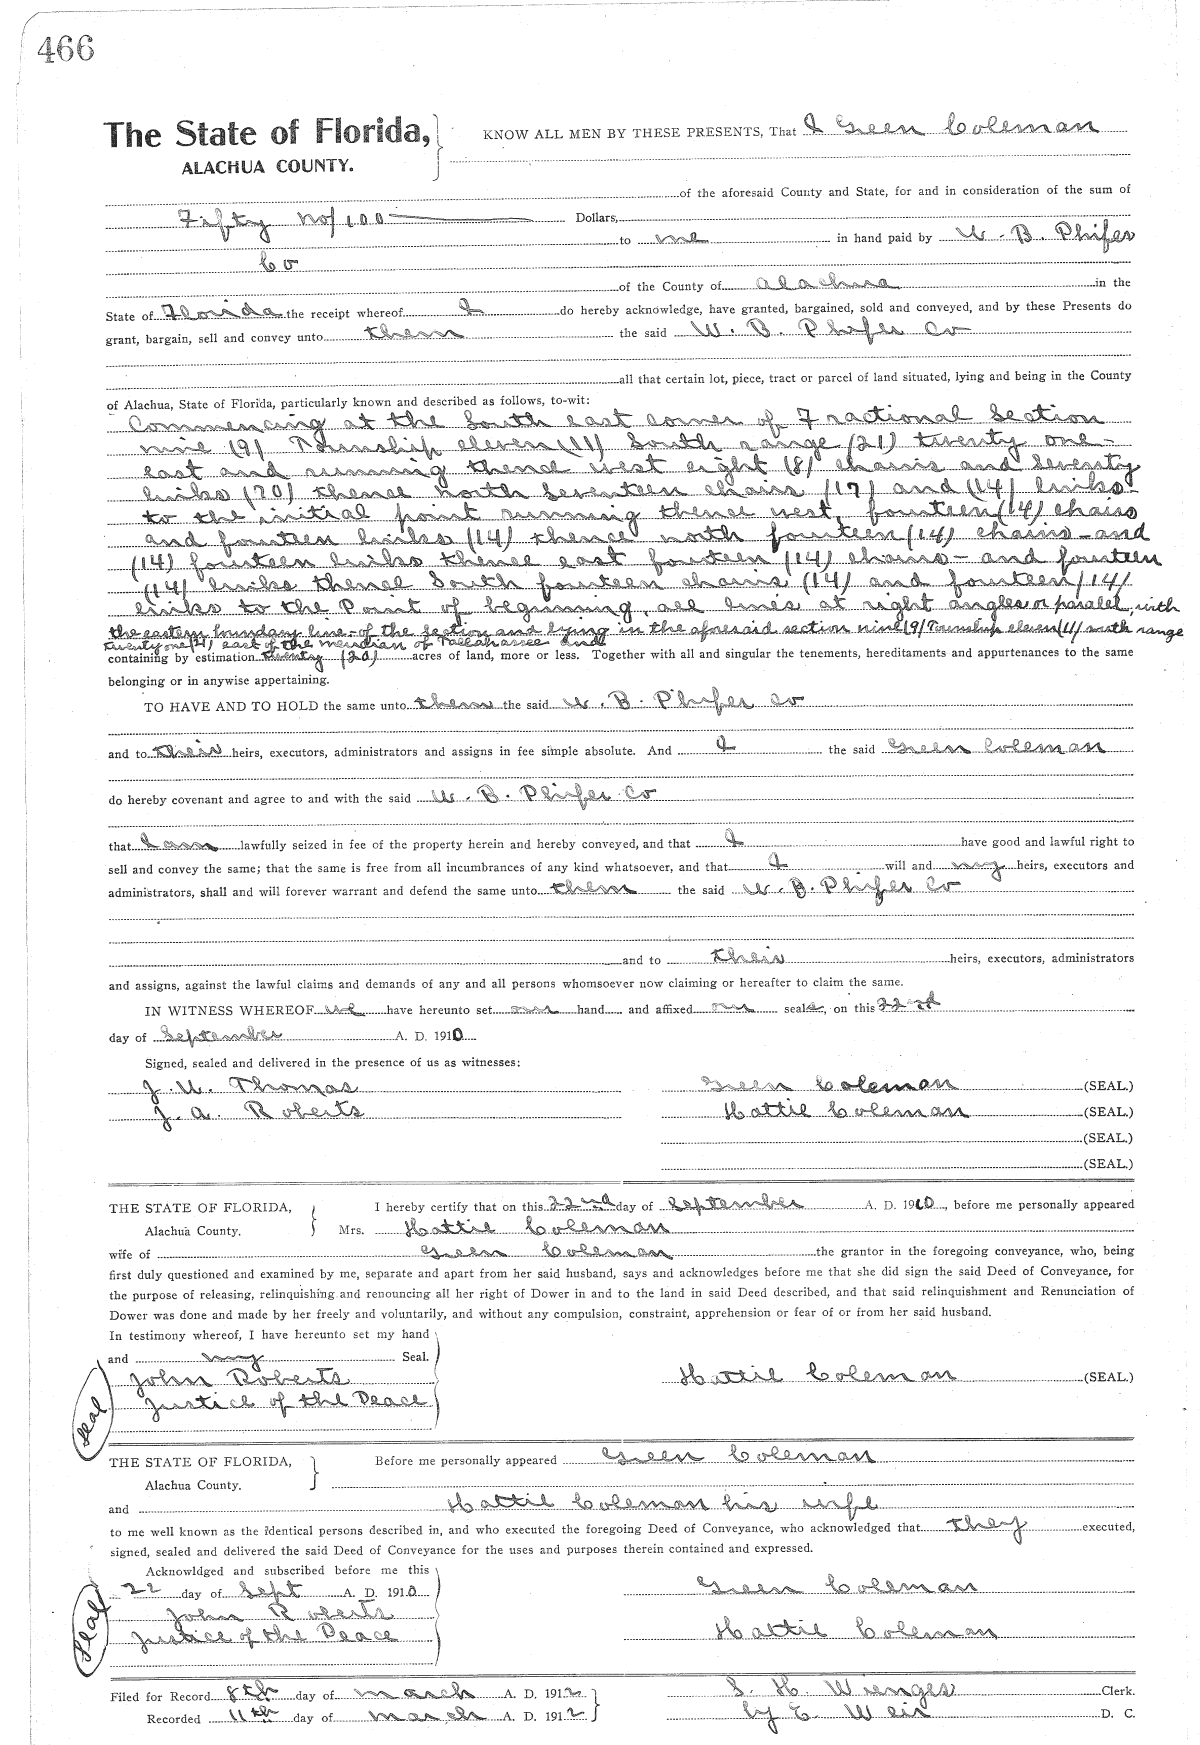 466
The State of Florida, KNOW ALL MEN BY THESE PRESENTS, That I Green Coleman
ALACHUA COUNTY.
of the aforesaid County and State, for and in consideration of the sum of
Fifty no/100 Dollars,
to me in hand paid by W. B. Phifer
Co
of the County of Alachua in the
State of Florida the receipt whereof I do hereby acknowledge, have granted, bargained, sold and conveyed, and by these Presents do
grant, bargain, sell and convey unto them the said W. B. Phifer Co
all that certain lot, piece, tract or parcel of land situated, lying and being in the County
of Alachua, State of Florida, particularly known and described as follows, to-wit:
Commencing at the South east corner of Fractional Section
nine (9) Township eleven (11) South range (21) twenty one
east and running thence west eight (8) chains and seventy
links (70) thence north seventeen chains (17) and (14) links
to the initial point running thence west, fourteen (14) chains
and fourteen links (14) thence north fourteen (14) chains - and
(14) fourteen links thence east fourteen (14) chains - and fourteen
(14) links thence South fourteen chains (14) and fourteen (14)
links to the Point of beginning, all lines at right angles or paralel, with
the eastern boundary line of the section and lying in the aforesaid section nine (9) Township eleven (11) south range
twenty one (21) east of the meridian of Tallahassee and
containing by estimation twenty (20) acres of land, more or less. Together with all and singular the tenements, hereditaments and appurtenances to the same
belonging or in anywise appertaining.
TO HAVE AND TO HOLD the same unto them the said W. B. Phifer Co
and to their heirs, executors, administrators and assigns in fee simple absolute. And I the said Green Coleman
do hereby covenant and agree to and with the said W. B. Phifer Co
that I am lawfully seized in fee of the property herein and hereby conveyed, and that I have good and lawful right to
sell and convey the same; that the same is free from all incumbrances of any kind whatsoever, and that I will and my heirs, executors and
administrators, shall and will forever warrant and defend the same unto them the said W. B. Phifer Co
and to their heirs, executors, administrators
and assigns, against the lawful claims and demands of any and all persons whomsoever now claiming or hereafter to claim the same.
IN WITNESS WHEREOF we have hereunto set our hand and affixed our seals, on this 22nd
day of September A. D. 1910
Signed, sealed and delivered in the presence of us as witnesses:
J. W. Thomas Green Coleman (SEAL.)
J. A. Roberts Hattie Coleman (SEAL.)
(SEAL.)
(SEAL.)
THE STATE OF FLORIDA, I hereby certify that on this 22nd day of September A. D. 1910, before me personally appeared
Alachua County. Mrs. Hattie Coleman
wife of Green Coleman the grantor in the foregoing conveyance, who, being
first duly questioned and examined by me, separate and apart from her said husband, says and acknowledges before me that she did sign the said Deed of Conveyance, for
the purpose of releasing, relinquishing and renouncing all her right of Dower in and to the land in said Deed described, and that said relinquishment and Renunciation of
Dower was done and made by her freely and voluntarily, and without any compulsion, constraint, apprehension or fear of or from her said husband.
In testimony whereof, I have hereunto set my hand
and my Seal.
John Roberts Hattie Coleman (SEAL.)
Justice of the Peace
Seal
THE STATE OF FLORIDA, Before me personally appeared Green Coleman
Alachua County.
and Hattie Coleman his wife
to me well known as the identical persons described in, and who executed the foregoing Deed of Conveyance, who acknowledged that they executed,
signed, sealed and delivered the said Deed of Conveyance for the uses and purposes therein contained and expressed.
Acknowldged and subscribed before me this
22 day of Sept A. D. 1910 Green Coleman
John Roberts
Justice of the Peace Hattie Coleman
Seal
Filed for Record 8th day of March A. D. 1912 S. H. Wienges Clerk.
Recorded 11th day of March A. D. 1912 by E. Weir D. C.